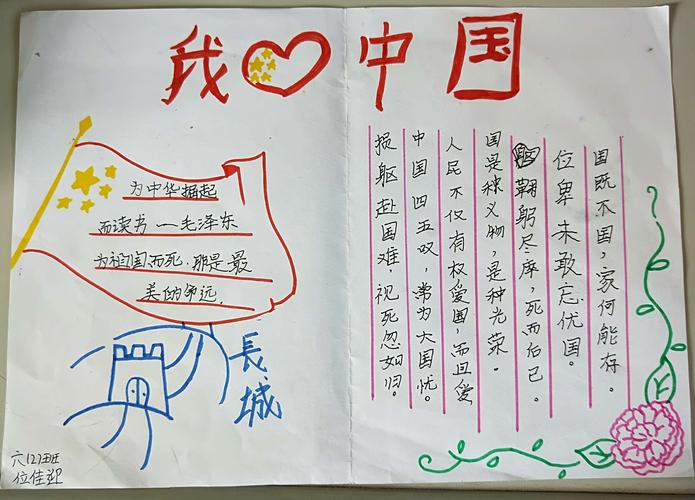 我 中国
为中华掘起
而读书—毛泽东
为祖国而死,那是最
美的命远.
長城
国既不国,家何能存。
位卑未敢忘优国。
躬尽瘁,死而后已。
国是种义物,是种光荣。
人民不仅有权爱国,而且爱
中国四五叹,常为大国忧。
损躯赴国难,视死忽如归。
六(2)班
位佳迎